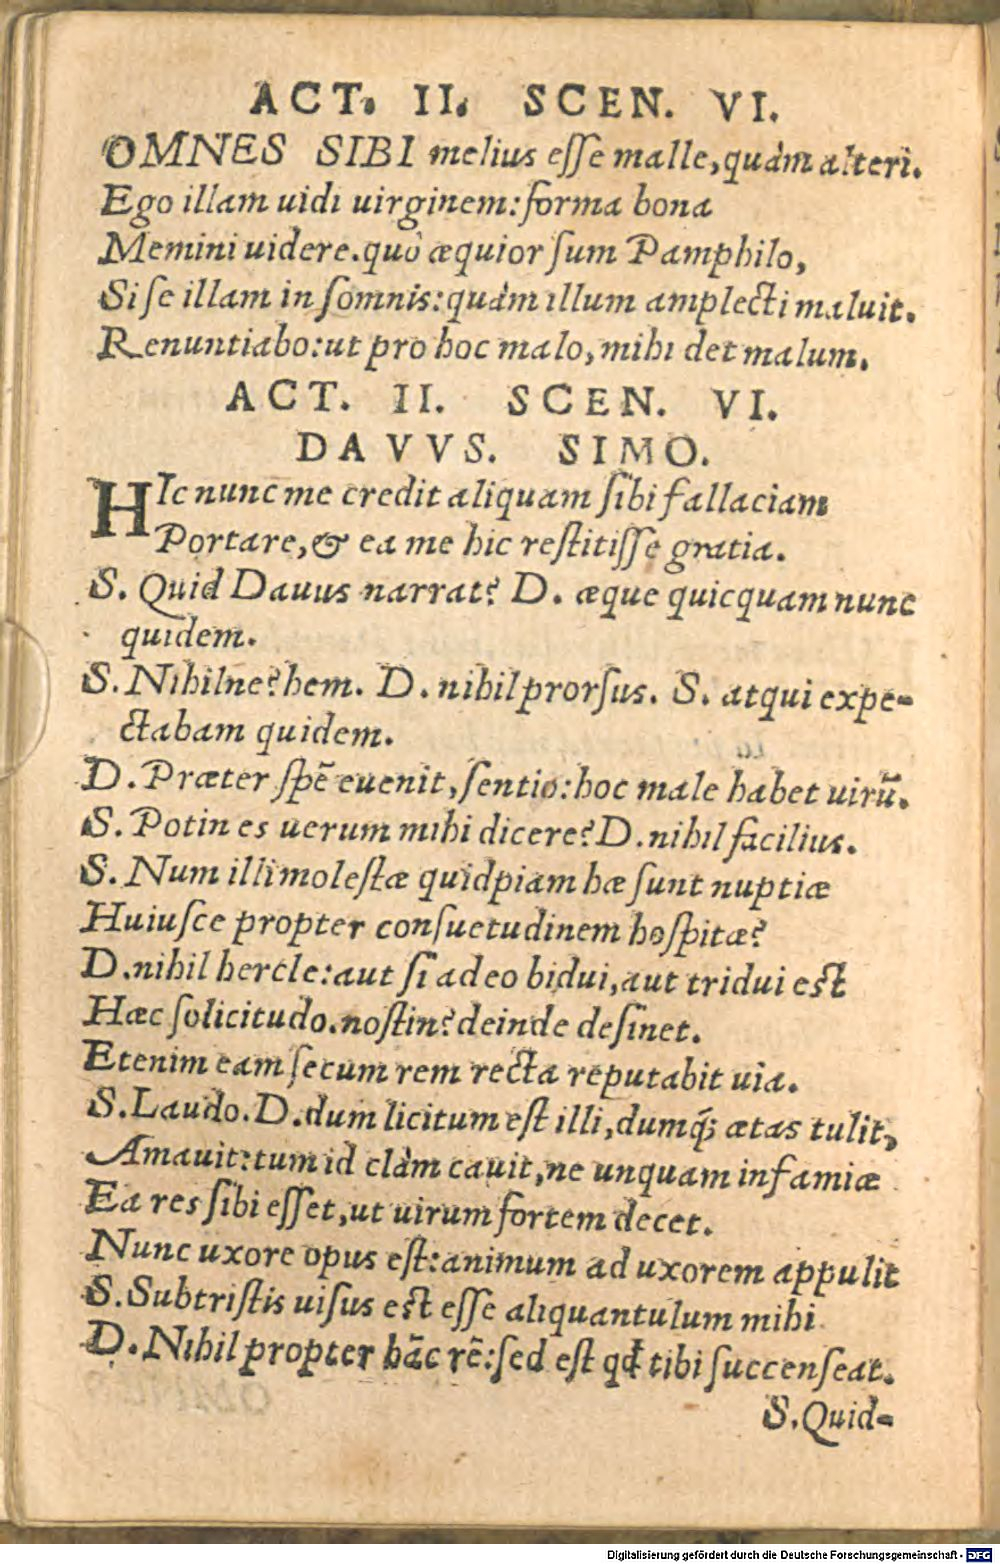 ACT. II. SCEN. VI.
OMNES SIBI melius eſſe malle, quàm alteri.
Ego illam uidi uirginem: forma bona
Memini uidere. quò æquior ſum Pamphilo,
Si ſe illam in ſomnis: quàm illum amplecti maluit.
Renuntiabo: ut pro hoc malo, mihi det malum.
ACT. II. SCEN. VI.
DAVVS. SIMO.
HIc nunc me credit aliquam ſibi fallaciam
Portare, & ea me hic reſtitiſſe gratia.
S. Quid Dauus narrat? D. æque quicquam nunc
quidem.
S. Nihilne? hem. D. nihil prorſus. S. atqui expe-
ctabam quidem.
D. Præter ſpē euenit, ſentio: hoc male habet uirū.
S. Potin es uerum mihi dicere? D. nihil facilius.
S. Num illi moleſtæ quidpiam hæ ſunt nuptiæ
Huiuſce propter conſuetudinem hoſpitæ?
D. nihil hercle: aut ſi adeo bidui, aut tridui eſt
Hæc ſolicitudo. noſtin? deinde deſinet.
Etenim eam ſecum rem recta reputabit uia.
S. Laudo. D. dum licitum eſt illi, dumq́; ætas tulit,
Amauit: tum id clàm cauit, ne unquam infamiæ
Ea res ſibi eſſet, ut uirum fortem decet.
Nunc uxore opus eſt: animum ad uxorem appulit
S. Subtriſtis uiſus eſt eſſe aliquantulum mihi
D. Nihil propter hāc rē: ſed eſt qđ tibi ſuccenſeat.
S. Quid-
Digitalisierung gefördert durch die Deutsche Forschungsgemeinschaft - DFG